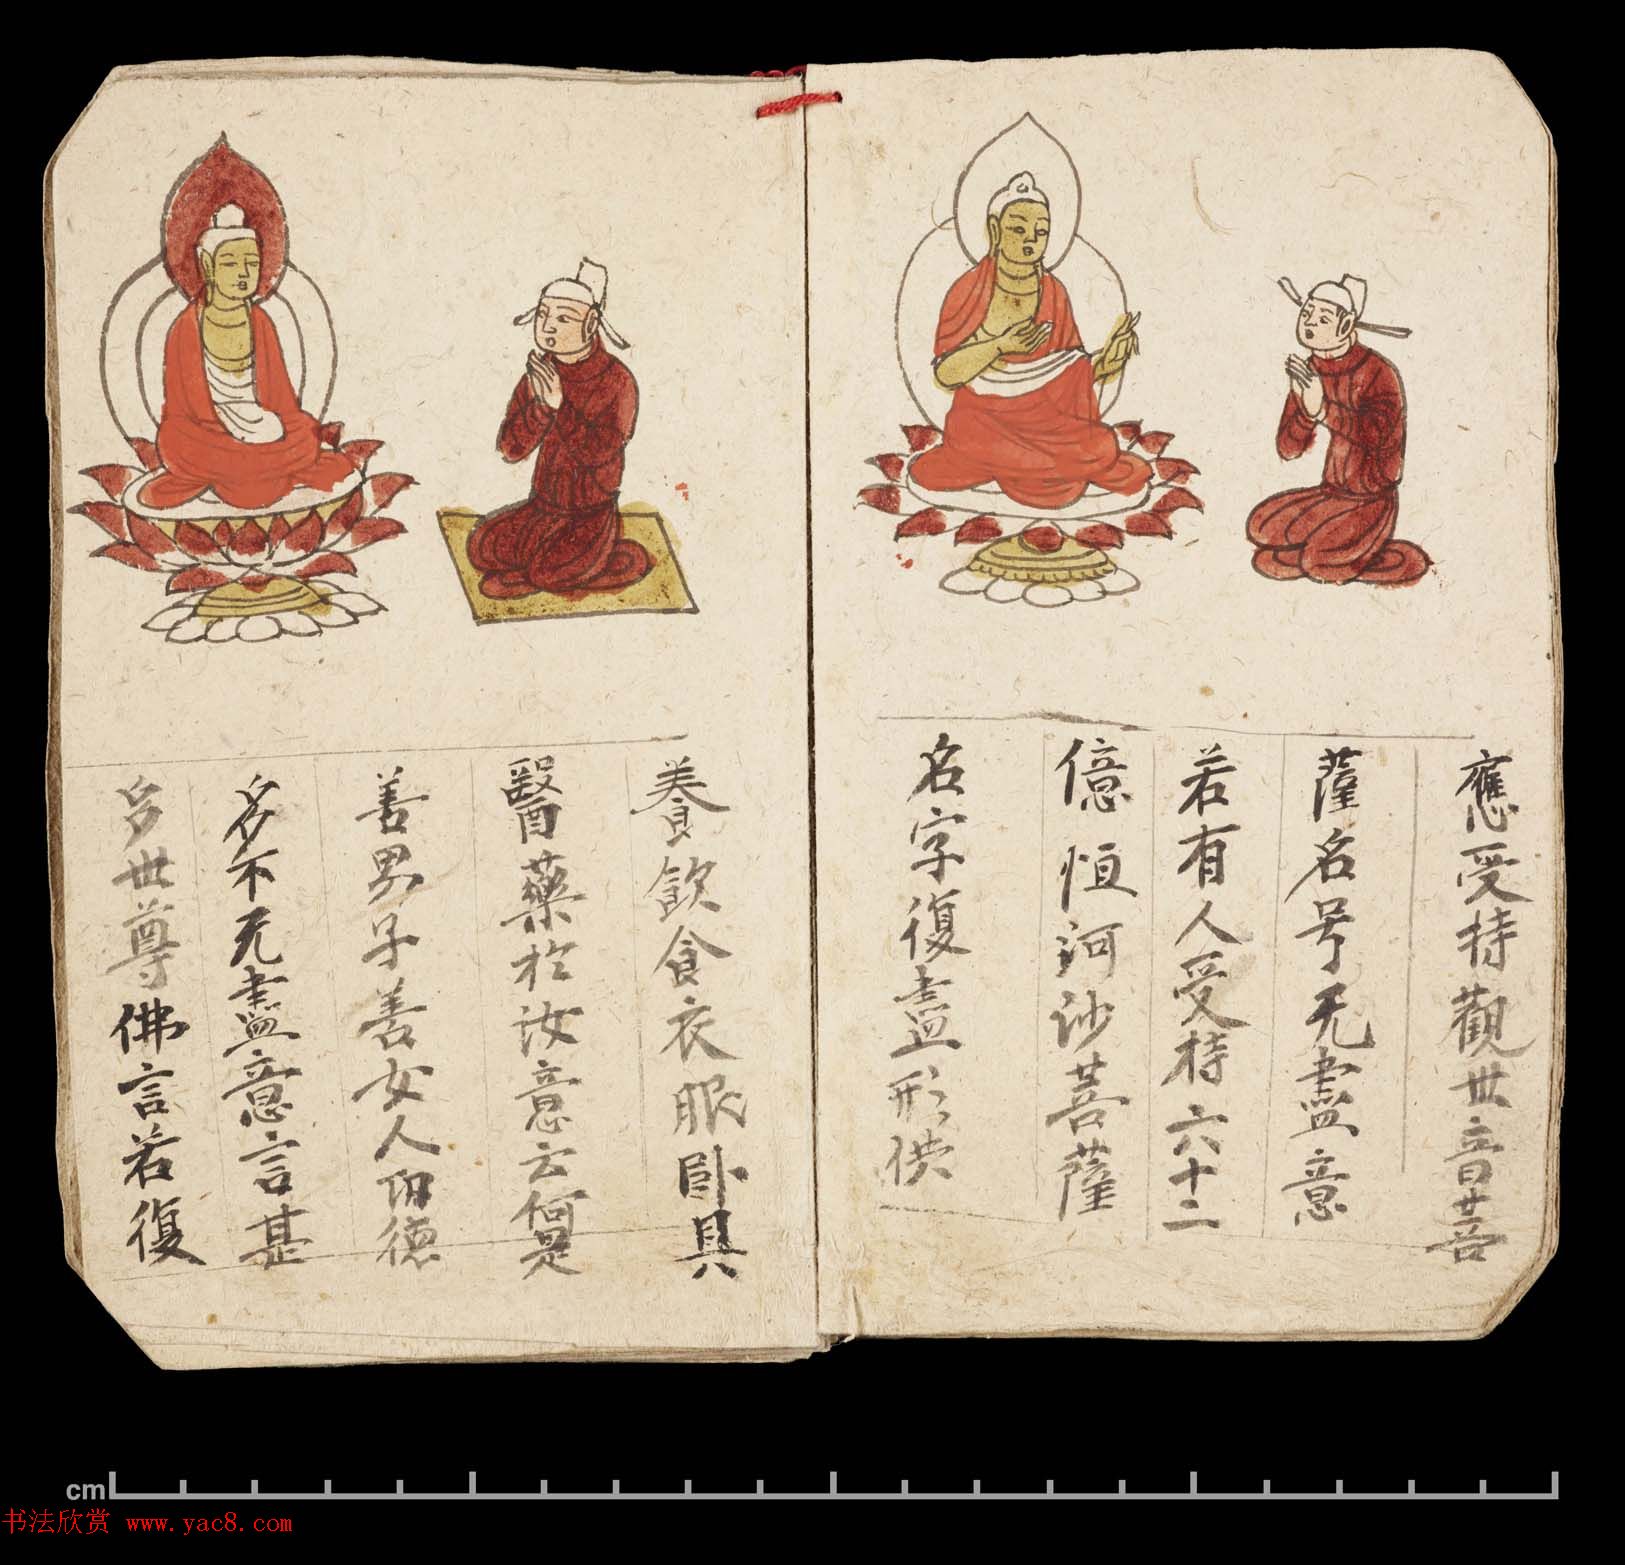 應受持觀世音菩
薩名号无盡意
若有人受持六十二
億恒河沙菩薩
名字復盡形供
養飲食衣服卧具
醫藥於汝意云何是
善男子善女人功德
多不无盡意言甚
多世尊佛言若復
cm
书法欣赏 www.yac8.com